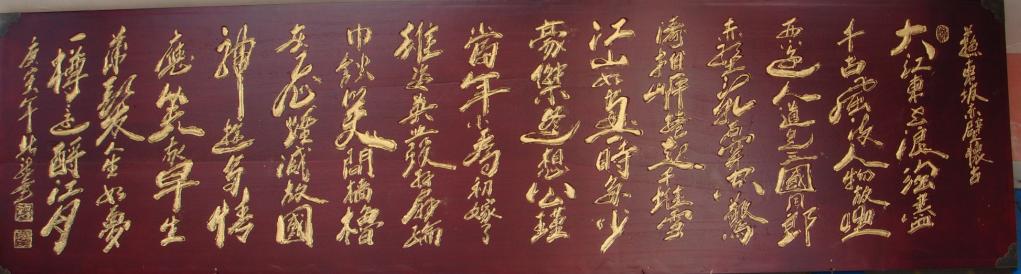 蘇東坡赤壁懷古
大江東去浪淘盡
千古風流人物故壘
西邊人道是三國周郎
赤壁亂石穿空驚
濤拍岸捲起千堆雪
江山如畫一時多少
豪傑遙想公瑾
當年小喬初嫁了
雄姿英發羽扇綸
巾談笑間檣櫓
灰飛煙滅故國
神遊多情
應笑我早生
華髮人生如夢
一樽還酹江月
庚寅年